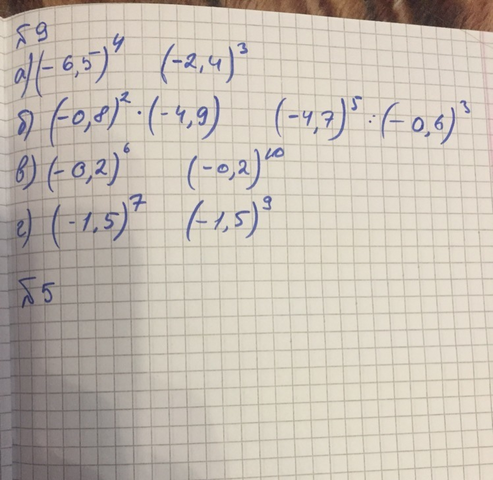 Б9
а) (-6,5)⁴ (-2,4)³
б) (-0,8)² · (-4,9) (-4,7)⁵ : (-0,6)³
в) (-0,2)⁶ (-0,2)¹⁰
г) (-1,5)⁷ (-1,5)⁹
Б5